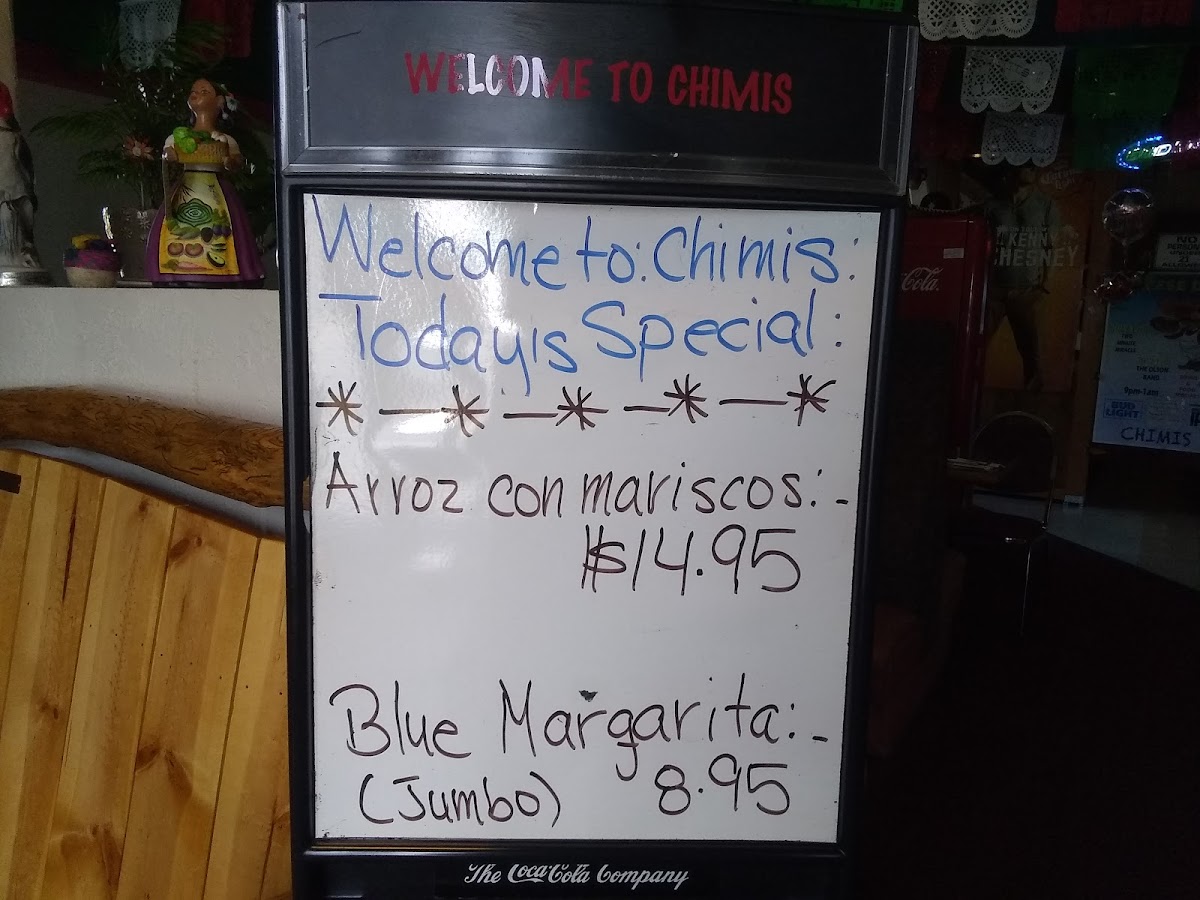 WELCOME TO CHIMIS
Welcome to: Chimis:
Today's Special:
* — * — * — * — *
Arroz con mariscos:-
$14.95
Blue Margarita:-
(Jumbo) 8.95
The Coca-Cola Company
Coca-Cola
KENNY
CHESNEY
NO
21
9pm-1am
BUD
LIGHT
CHIMIS